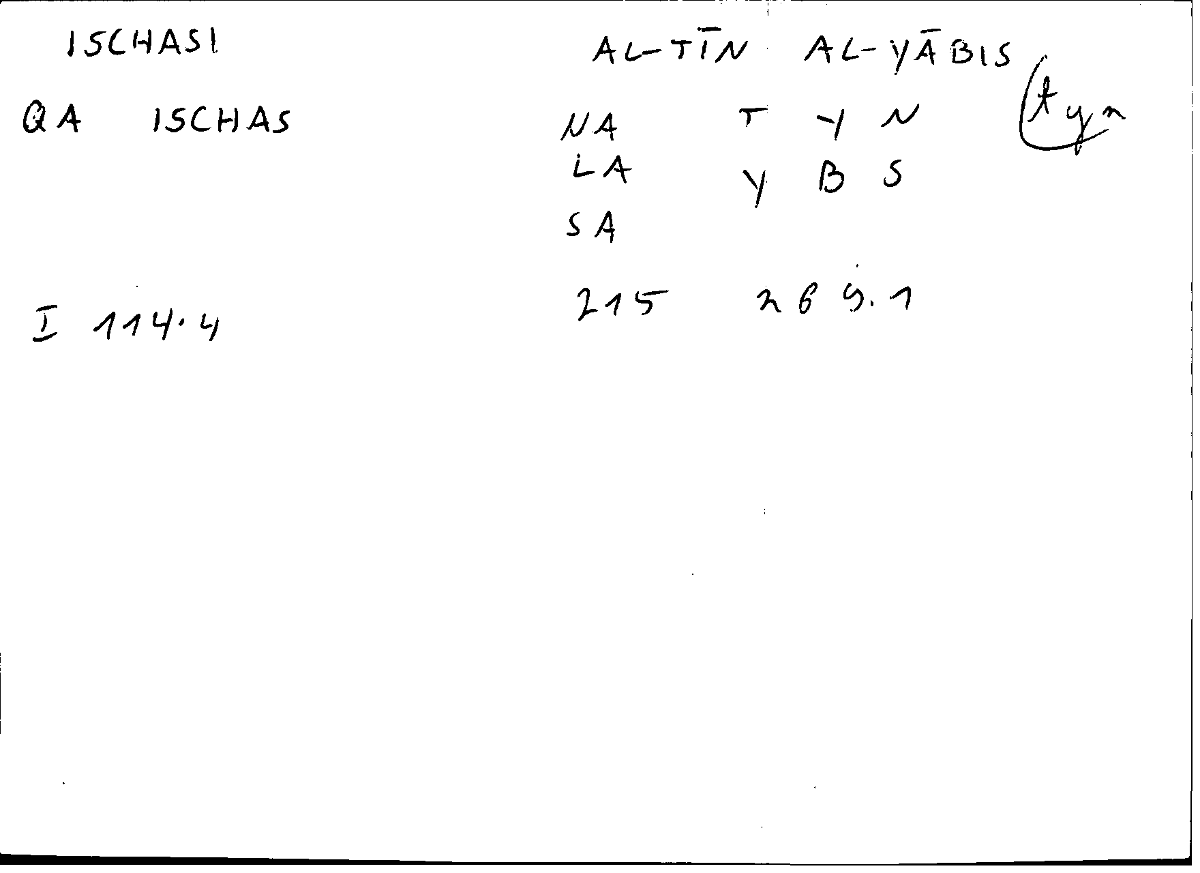 ISCHASI AL-TĪN AL-YĀBIS
QA ISCHAS NA T Y N (tyn
LA Y B S
SA
I 114.4 215 269.1